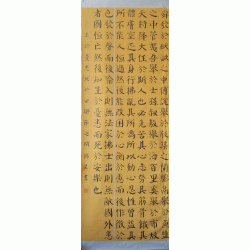 舜發於畎畝之中傅說舉於版築之間膠鬲舉於魚鹽
之中管夷吾舉於士孫叔敖舉於海百里奚舉於市故
天將降大任於斯人也必先苦其心志勞其筋骨餓其
體膚空乏其身行拂亂其所為所以動心忍性曾益其
所不能人恒過然後能改困於心衡於慮而後作徵於
色發於聲而後喻入則無法家拂士出則無敵國外患
者國恒亡然後知生於憂患而死於安樂也